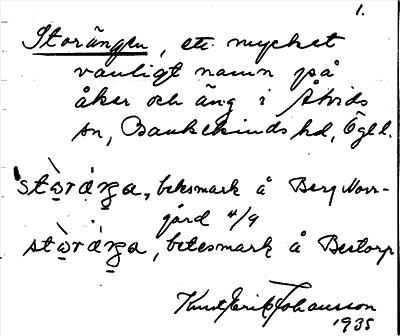 1.
Storängen, ett mycket
vanligt namn på
åker och äng i Åtvids
sn, Bankekinds hd, Ögl.
stò̱rä́ŋa, betesmark å Berg Norr-
gård 4/9
stò̱rä́ŋa, betesmark å Bestorp
Knut Erik Johansson
1935